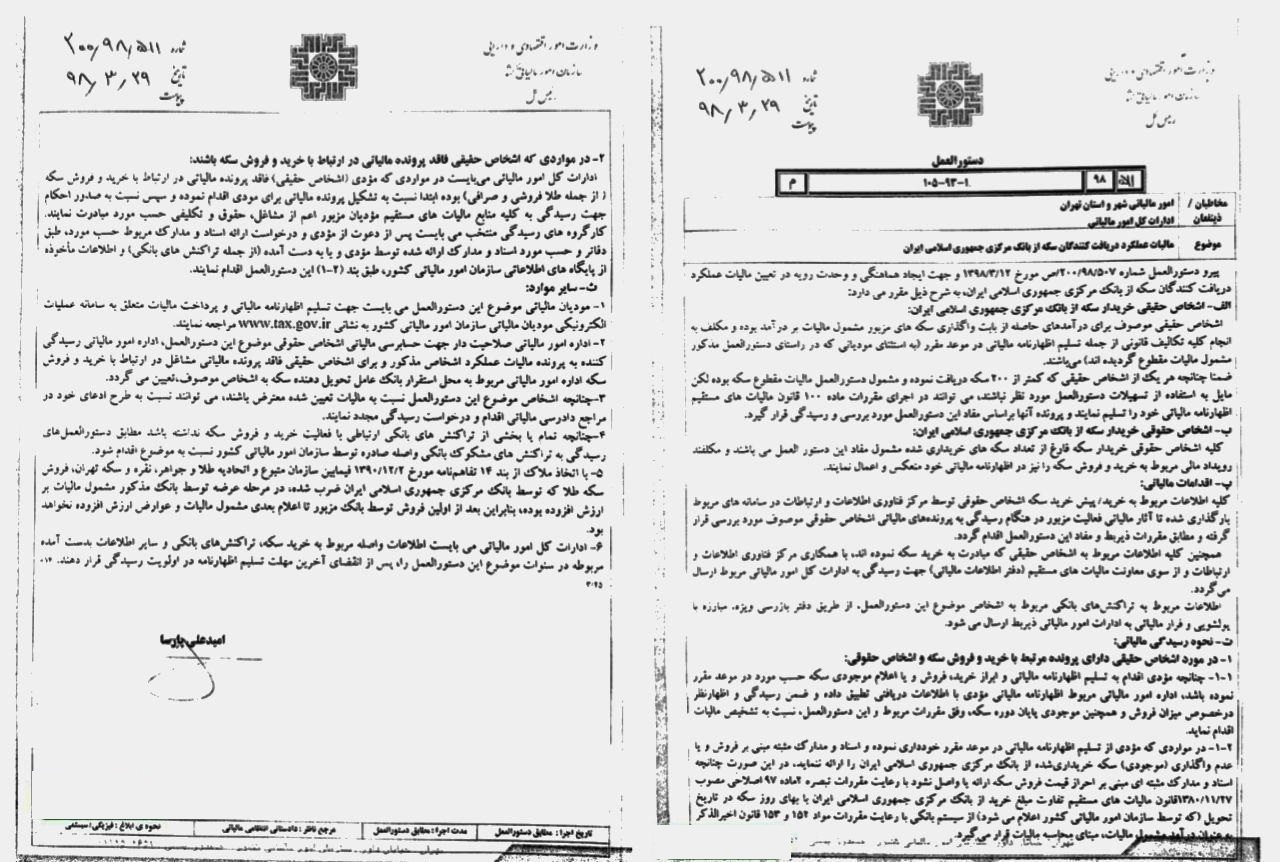 وزارت امور اقتصادی و دارایی
سازمان امور مالیاتی کشور
رییس کل
شماره ۲۰۰/۹۸/۵۱۱
تاریخ ۹۸/۳/۲۹
پیوست
دستورالعمل
۱۰۵-۹۳-۱ ۹۸ م
مخاطبان / ذینفعان
امور مالیاتی شهر و استان تهران
ادارات کل امور مالیاتی
موضوع
مالیات عملکرد دریافت کنندگان سکه از بانک مرکزی جمهوری اسلامی ایران
پیرو دستورالعمل شماره ۲۰۰/۹۸/۵۰۷/ص مورخ ۱۳۹۸/۳/۱۲ و جهت ایجاد هماهنگی و وحدت رویه در تعیین مالیات عملکرد
دریافت کنندگان سکه از بانک مرکزی جمهوری اسلامی ایران، به شرح ذیل مقرر می دارد:
الف- اشخاص حقیقی خریدار سکه از بانک مرکزی جمهوری اسلامی ایران:
اشخاص حقیقی موصوف برای درآمدهای حاصله از بابت واگذاری سکه های مزبور مشمول مالیات بر درآمد بوده و مکلف به
انجام کلیه تکالیف قانونی از جمله تسلیم اظهارنامه مالیاتی در موعد مقرر (به استثنای مودیانی که در راستای دستورالعمل مذکور
مشمول مالیات مقطوع گردیده اند) می‌باشند.
ضمنا چنانچه هر یک از اشخاص حقیقی که کمتر از ۲۰۰ سکه دریافت نموده و مشمول دستورالعمل مالیات مقطوع سکه بوده لکن
مایل به استفاده از تسهیلات دستورالعمل مورد نظر نباشند، می توانند در اجرای مقررات ماده ۱۰۰ قانون مالیات های مستقیم
اظهارنامه مالیاتی خود را تسلیم نمایند و پرونده آنها براساس مفاد این دستورالعمل مورد بررسی و رسیدگی قرار گیرد.
ب- اشخاص حقوقی خریدار سکه از بانک مرکزی جمهوری اسلامی ایران:
کلیه اشخاص حقوقی خریدار سکه فارغ از تعداد سکه های خریداری شده مشمول مفاد این دستور العمل می باشند و مکلفند
رویداد مالی مربوط به خرید و فروش سکه را نیز در اظهارنامه مالیاتی خود منعکس و اعمال نمایند.
پ- اقدامات مالیاتی:
کلیه اطلاعات مربوط به خرید/ پیش خرید سکه اشخاص حقوقی توسط مرکز فناوری اطلاعات و ارتباطات در سامانه های مربوط
بارگذاری شده تا آثار مالیاتی فعالیت مزبور در هنگام رسیدگی به پرونده‌های مالیاتی اشخاص حقوقی موصوف مورد بررسی قرار
گرفته و مطابق مقررات ذیربط و مفاد این دستورالعمل اقدام گردد.
همچنین کلیه اطلاعات مربوط به اشخاص حقیقی که مبادرت به خرید سکه نموده اند، با همکاری مرکز فناوری اطلاعات و
ارتباطات و از سوی معاونت مالیات های مستقیم (دفتر اطلاعات مالیاتی) جهت رسیدگی به ادارات کل امور مالیاتی مربوط ارسال
می‌گردد.
اطلاعات مربوط به تراکنش‌های بانکی مربوط به اشخاص موضوع این دستورالعمل، از طریق دفتر بازرسی ویژه، مبارزه با
پولشویی و فرار مالیاتی به ادارات امور مالیاتی ذیربط ارسال می شود.
ت- نحوه رسیدگی مالیاتی:
۱- در مورد اشخاص حقیقی دارای پرونده مرتبط با خرید و فروش سکه و اشخاص حقوقی:
۱-۱- چنانچه مؤدی اقدام به تسلیم اظهارنامه مالیاتی و ابراز خرید، فروش و یا اعلام موجودی سکه حسب مورد در موعد مقرر
نموده باشد، اداره امور مالیاتی مربوط اظهارنامه مالیاتی مؤدی با اطلاعات دریافتی تطبیق داده و ضمن رسیدگی و اظهارنظر
درخصوص میزان فروش و همچنین موجودی پایان دوره سکه، وفق مقررات مربوط و این دستورالعمل، نسبت به تشخیص مالیات
اقدام نماید.
۱-۲- در مواردی که مؤدی از تسلیم اظهارنامه مالیاتی در موعد مقرر خودداری نموده و اسناد و مدارک مثبته مبنی بر فروش و یا
عدم واگذاری (موجودی) سکه خریداری‌شده از بانک مرکزی جمهوری اسلامی ایران را ارائه ننماید، در این صورت چنانچه
اسناد و مدارک مثبته ای مبنی بر احراز قیمت فروش سکه ارائه یا واصل نشود با رعایت مقررات تبصره ۲ماده ۹۷ اصلاحی مصوب
۱۳۸۰/۱۱/۲۷قانون مالیات های مستقیم تفاوت مبلغ خرید از بانک مرکزی جمهوری اسلامی ایران با بهای روز سکه در تاریخ
تحویل (که توسط سازمان امور مالیاتی کشور اعلام می شود) از سیستم بانکی با رعایت مقررات مواد ۱۵۲ و ۱۵۳ قانون اخیرالذکر
به عنوان درآمد مشمول مالیات، مبنای محاسبه مالیات قرار می‌گیرد.
وزارت امور اقتصادی و دارایی
سازمان امور مالیاتی کشور
رییس کل
شماره ۲۰۰/۹۸/۵۱۱
تاریخ ۹۸/۳/۲۹
پیوست
۲- در مواردی که اشخاص حقیقی فاقد پرونده مالیاتی در ارتباط با خرید و فروش سکه باشند:
ادارات کل امور مالیاتی می‌بایست در مواردی که مؤدی (اشخاص حقیقی) فاقد پرونده مالیاتی در ارتباط با خرید و فروش سکه
( از جمله طلا فروشی و صرافی) بوده ابتدا نسبت به تشکیل پرونده مالیاتی برای مودی اقدام نموده و سپس نسبت به صدور احکام
جهت رسیدگی به کلیه منابع مالیات های مستقیم مؤدیان مزبور اعم از مشاغل، حقوق و تکلیفی حسب مورد مبادرت نمایند.
کارگروه های رسیدگی منتخب می بایست پس از دعوت از مؤدی و درخواست ارائه اسناد و مدارک مربوط حسب مورد، طبق
دفاتر و حسب مورد اسناد و مدارک ارائه شده توسط مؤدی و یا به دست آمده (از جمله تراکنش های بانکی) و اطلاعات مأخوذه
از پایگاه های اطلاعاتی سازمان امور مالیاتی کشور، طبق بند (۲-۱) این دستورالعمل اقدام نمایند.
ث- سایر موارد:
۱- مودیان مالیاتی موضوع این دستورالعمل می بایست جهت تسلیم اظهارنامه مالیاتی و پرداخت مالیات متعلق به سامانه عملیات
الکترونیکی مودیان مالیاتی سازمان امور مالیاتی کشور به نشانی www.tax.gov.ir مراجعه نمایند.
۲- اداره امور مالیاتی صلاحیت دار جهت حسابرسی مالیاتی اشخاص حقوقی موضوع این دستورالعمل، اداره امور مالیاتی رسیدگی
کننده به پرونده مالیات عملکرد اشخاص مذکور و برای اشخاص حقیقی فاقد پرونده مالیاتی مشاغل در ارتباط با خرید و فروش
سکه اداره امور مالیاتی مربوط به محل استقرار بانک عامل تحویل دهنده سکه به اشخاص موصوف،تعیین می گردد.
۳-چنانچه اشخاص موضوع این دستورالعمل نسبت به مالیات تعیین شده معترض باشند، می توانند نسبت به طرح ادعای خود در
مراجع دادرسی مالیاتی اقدام و درخواست رسیدگی مجدد نمایند.
۴-چنانچه تمام یا بخشی از تراکنش های بانکی ارتباطی با فعالیت خرید و فروش سکه نداشته باشد مطابق دستورالعمل‌های
رسیدگی به تراکنش های مشکوک بانکی واصله صادره توسط سازمان امور مالیاتی کشور نسبت به موضوع اقدام شود.
۵- با اتخاذ ملاک از بند ۱۴ تفاهم‌نامه مورخ ۱۳۹۰/۱۲/۲ فیمابین سازمان متبوع و اتحادیه طلا و جواهر، نقره و سکه تهران، فروش
سکه طلا که توسط بانک مرکزی جمهوری اسلامی ایران ضرب شده، در مرحله عرضه توسط بانک مذکور مشمول مالیات بر
ارزش افزوده بوده، بنابراین بعد از اولین فروش توسط بانک مزبور تا اعلام بعدی مشمول مالیات و عوارض ارزش افزوده نخواهد
بود.
۶- ادارات کل امور مالیاتی می بایست اطلاعات واصله مربوط به خرید سکه، تراکنش‌های بانکی و سایر اطلاعات بدست آمده
مربوطه در سنوات موضوع این دستورالعمل را، پس از انقضای آخرین مهلت تسلیم اظهارنامه در اولویت رسیدگی قرار دهند.
امیدعلی پارسا
تاریخ اجرا: مطابق دستورالعمل
مدت اجرا: مطابق دستورالعمل
مرجع ناظر: دادستانی انتظامی مالیاتی
نحوه ی ابلاغ: فیزیکی/سیستمی